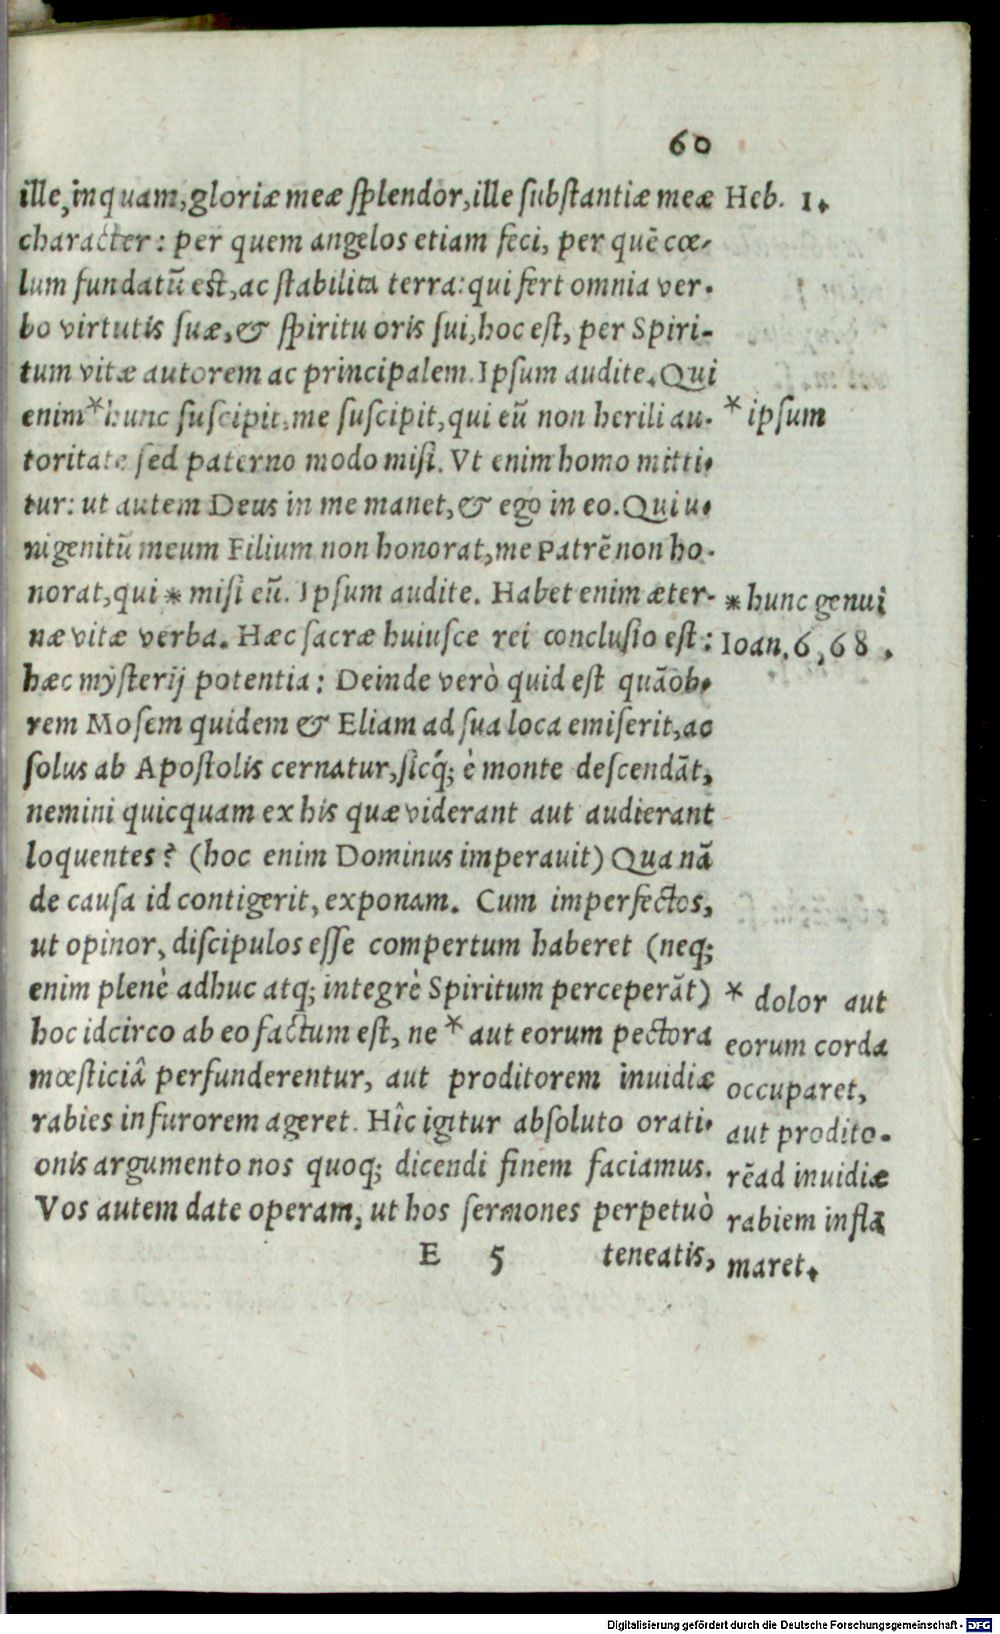 60
ille, inquam, gloriæ meæ ſplendor, ille ſubſtantiæ meæ
character: per quem angelos etiam feci, per quē cœ-
lum fundatū eſt, ac ſtabilita terra: qui fert omnia ver-
bo virtutis ſuæ, & ſpiritu oris ſui, hoc eſt, per Spiri-
tum vitæ autorem ac principalem. Ipſum audite. Qui
enim * hunc ſuſcipit, me ſuſcipit, qui eū non herili au-
toritate ſed paterno modo miſi. Vt enim homo mitti-
tur: ut autem Deus in me manet, & ego in eo. Qui u-
nigenitū meum Filium non honorat, me Patrē non ho-
norat, qui * miſi eū. Ipſum audite. Habet enim æter-
næ vitæ verba. Hæc ſacræ huiuſce rei concluſio eſt:
hæc myſterij potentia: Deinde verò quid eſt quāob-
rem Moſem quidem & Eliam ad ſua loca emiſerit, ac
ſolus ab Apoſtolis cernatur, ſicq́; è monte deſcendāt,
nemini quicquam ex his quæ viderant aut audierant
loquentes? (hoc enim Dominus imperauit) Qua nā
de cauſa id contigerit, exponam. Cum imperfectos,
ut opinor, diſcipulos eſſe compertum haberet (neq;
enim plenè adhuc atq; integrè Spiritum perceperāt)
hoc idcirco ab eo factum eſt, ne * aut eorum pectora
mœſticiâ perfunderentur, aut proditorem inuidiæ
rabies in furorem ageret. Hîc igitur abſoluto orati-
onis argumento nos quoq; dicendi finem faciamus.
Vos autem date operam, ut hos ſermones perpetuò
E 5 teneatis,
Heb. 1.
* ipſum
* hunc genui
Ioan. 6, 68.
* dolor aut
eorum corda
occuparet,
aut prodito-
rē ad inuidiæ
rabiem inflā
maret.
Digitalisierung gefördert durch die Deutsche Forschungsgemeinschaft - DFG